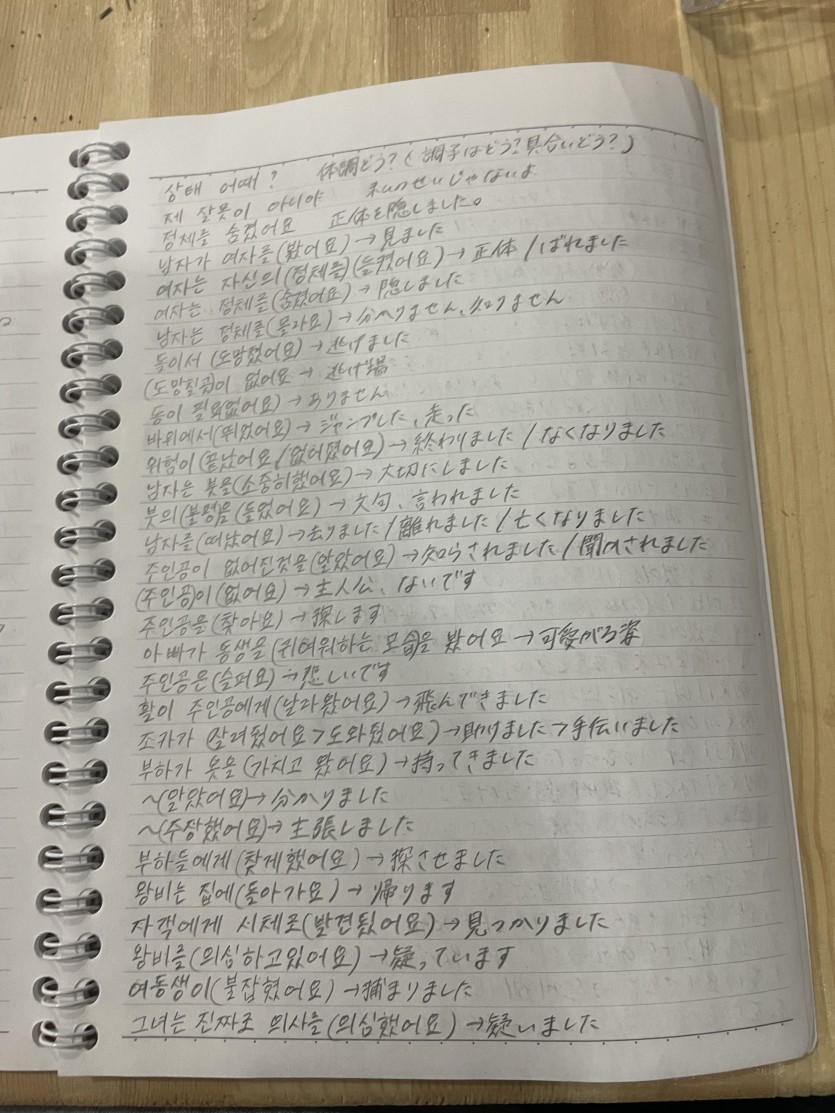 상태 어때? 体調どう?(調子はどう?具合いどう?)
제 잘못이 아니야 私のせいじゃないよ
정체를 숨겼어요 正体を隠しました。
남자가 여자를(봤어요)→見ました
여자는 자신의(정체를)(들켰어요)→正体/ばれました
여자는 정체를(숨겼어요)→隠しました
남자는 정체를(몰라요)→分かりません、知りません
둘이서(도망쳤어요)→逃げました
(도망칠곳)이 없어요→逃げ場
돈이 필요(없어요)→ありません
바위에서(뛰었어요)→ジャンプした、走った
위험이(끝났어요/없어졌어요)→終わりました/なくなりました
남자는 붓을(소중히했어요)→大切にしました
붓의(불평)을(들었어요)→文句、言われました
남자를(떠났어요)→去りました/離れました/亡くなりました
주인공이 없어진것을(알았어요)→知らされました/聞かされました
(주인공)이(없어요)→主人公、ないです
주인공을(찾아요)→探します
아빠가 동생을(귀여워하는 모습)을 봤어요→可愛がる姿
주인공은(슬퍼요)→悲しいです
활이 주인공에게(날라왔어요)→飛んできました
조카가(살려줬어요>도와줬어요)→助けました>手伝いました
부하가 옷을(가지고 왔어요)→持ってきました
~(알았어요)→分かりました
~(주장했어요)→主張しました
부하들에게(찾게했어요)→探させました
왕비는 집에(돌아가요)→帰ります
자객에게 시체로(발견됬어요)→見つかりました
왕비를(의심하고있어요)→疑っています
여동생이(붙잡혔어요)→捕まりました
그녀는 진짜로 의사를(의심했어요)→疑いました